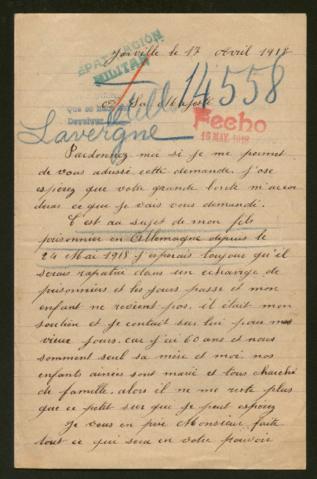 Joinville le 17 Avril 1918
REPATRIACIÓN
MILITAR
14558
A Sa Majesté
Que se
Devolver
Fecho
16 MAY. 1918
Lavergne
Pardonnez moi si je me permet
de vous adressé cette demande. j'ose
espérez que votre grande bonté m'accor
deras ce que je vais vous demandé.
C'est au sujet de mon fils
prisonnier en Allemagne depuis le
24 Mai 1918 j'esperais toujours qu'il
serais rapatrié dans un échange de
prisonniers et les jours passe et mon
enfant ne revient pas. il était mon
soutien et je contait sur lui pour mes
vieux jours. car j'ai 60 ans et nous
somment seul sa mère et moi nos
enfants ainées sont marié et tous chargé
de famille. alors il ne me reste plus
que ce petit sur que je peut espérez
Je vous en prie Monsieur faite
tout ce qui sera en votre pouvoir